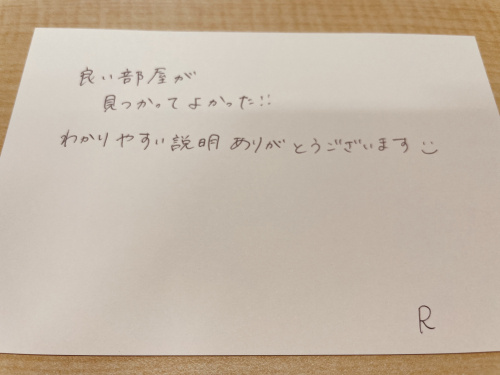 良い部屋が
見つかってよかった!!
わかりやすい説明ありがとうございます
R